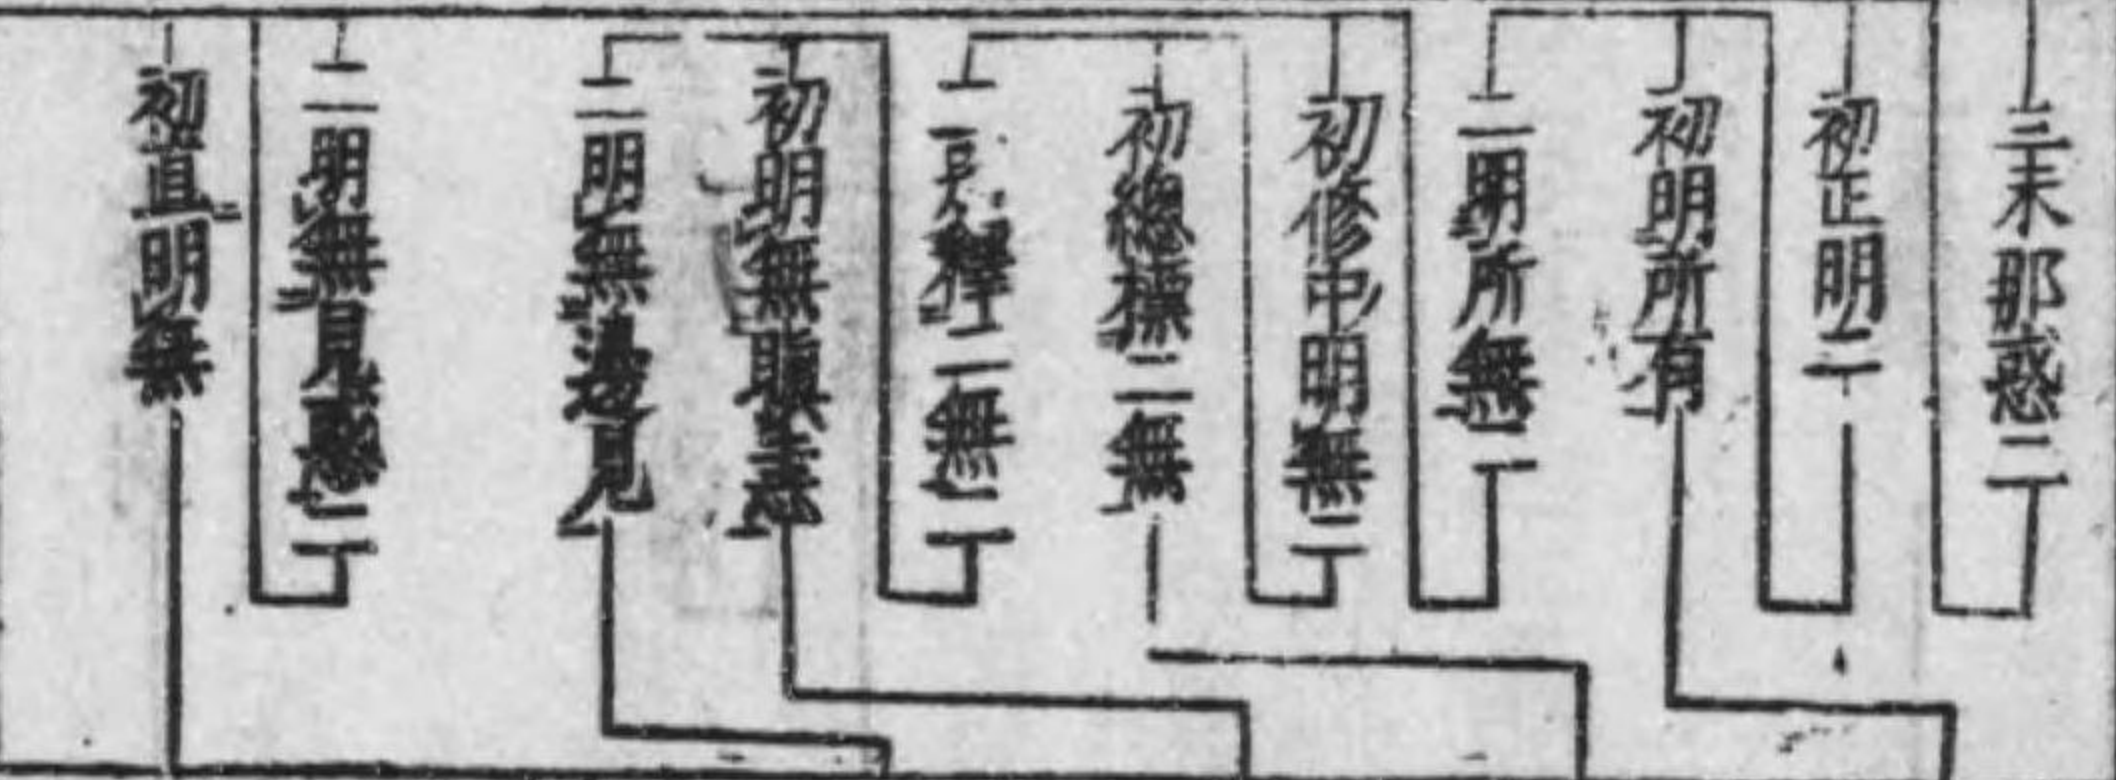 三末那惑二
初正明二
初明所有
二明所無二
初修中明無二
初總標二無
二別釋二無二
初明無瞋恚
二明無邊見
二明無見惑二
初直明無